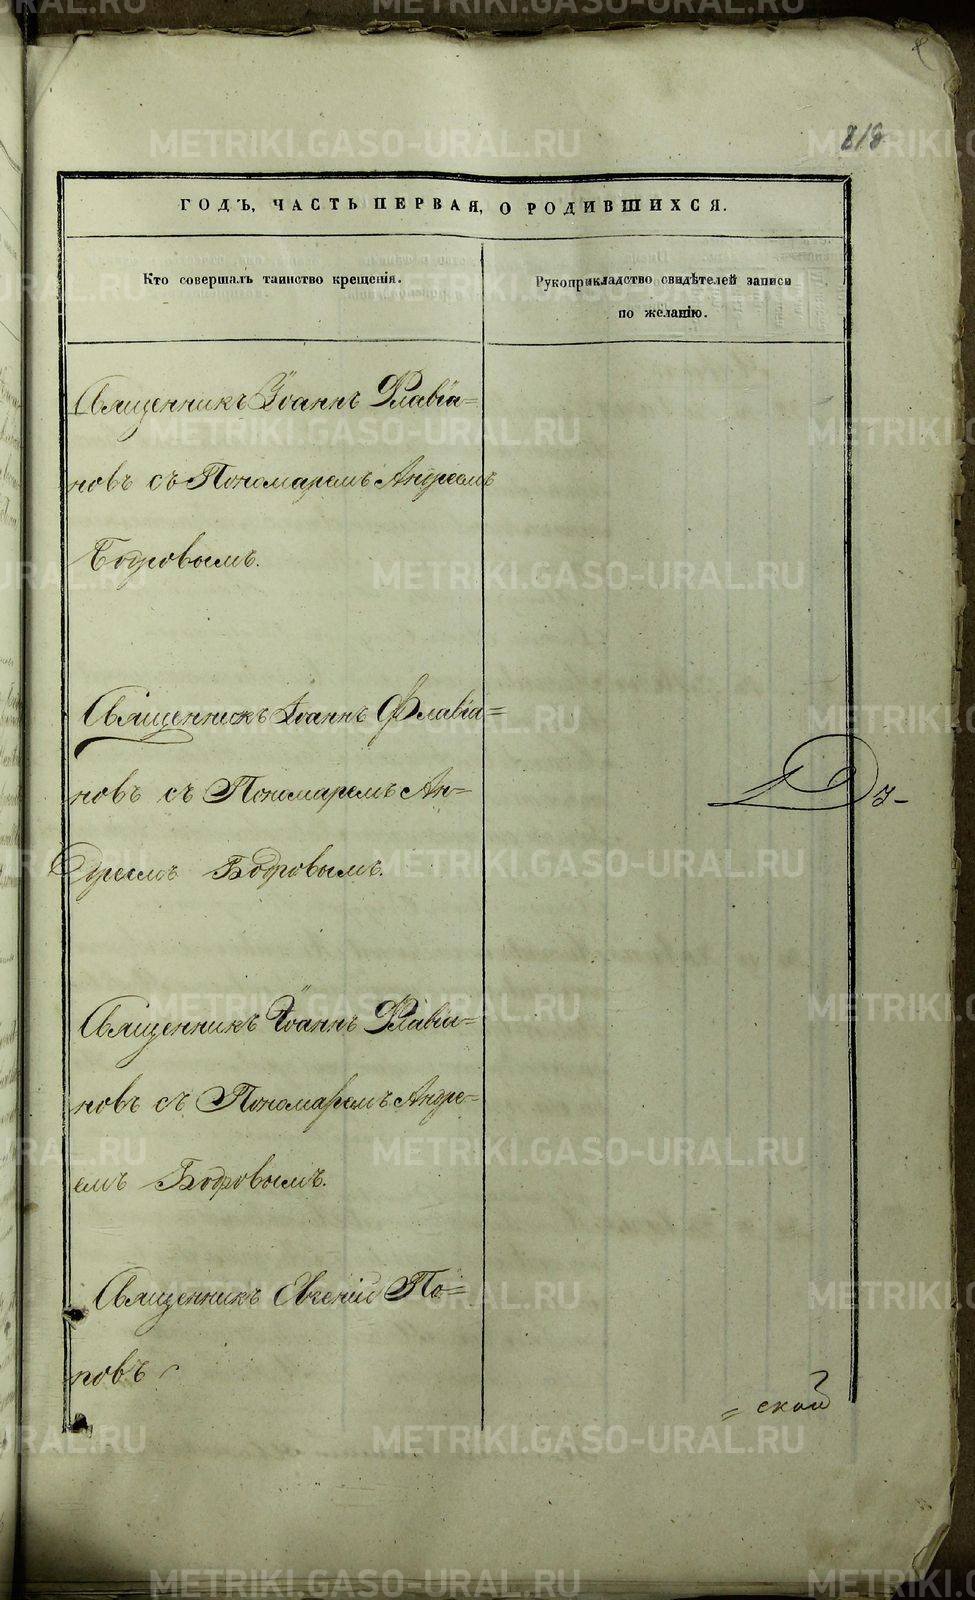 218
ГОДЪ, ЧАСТЬ ПЕРВАЯ, О РОДИВШИХСЯ.
Кто совершалъ таинство крещенія.
Рукоприкладство свидѣтелей записи
по желанію.
Священникъ Іоаннъ Флавіа=
новъ съ Пономаремъ Андреемъ
Бодровымъ.
Священникъ Іоаннъ Флавіа=
новъ съ Пономаремъ Ан=
дреемъ Бодровымъ.
Священникъ Іоаннъ Флавіа=
новъ съ Пономаремъ Андре=
емъ Бодровымъ.
Священникъ Евгеній По=
повъ
= ской
METRIKI.GASO-URAL.RU